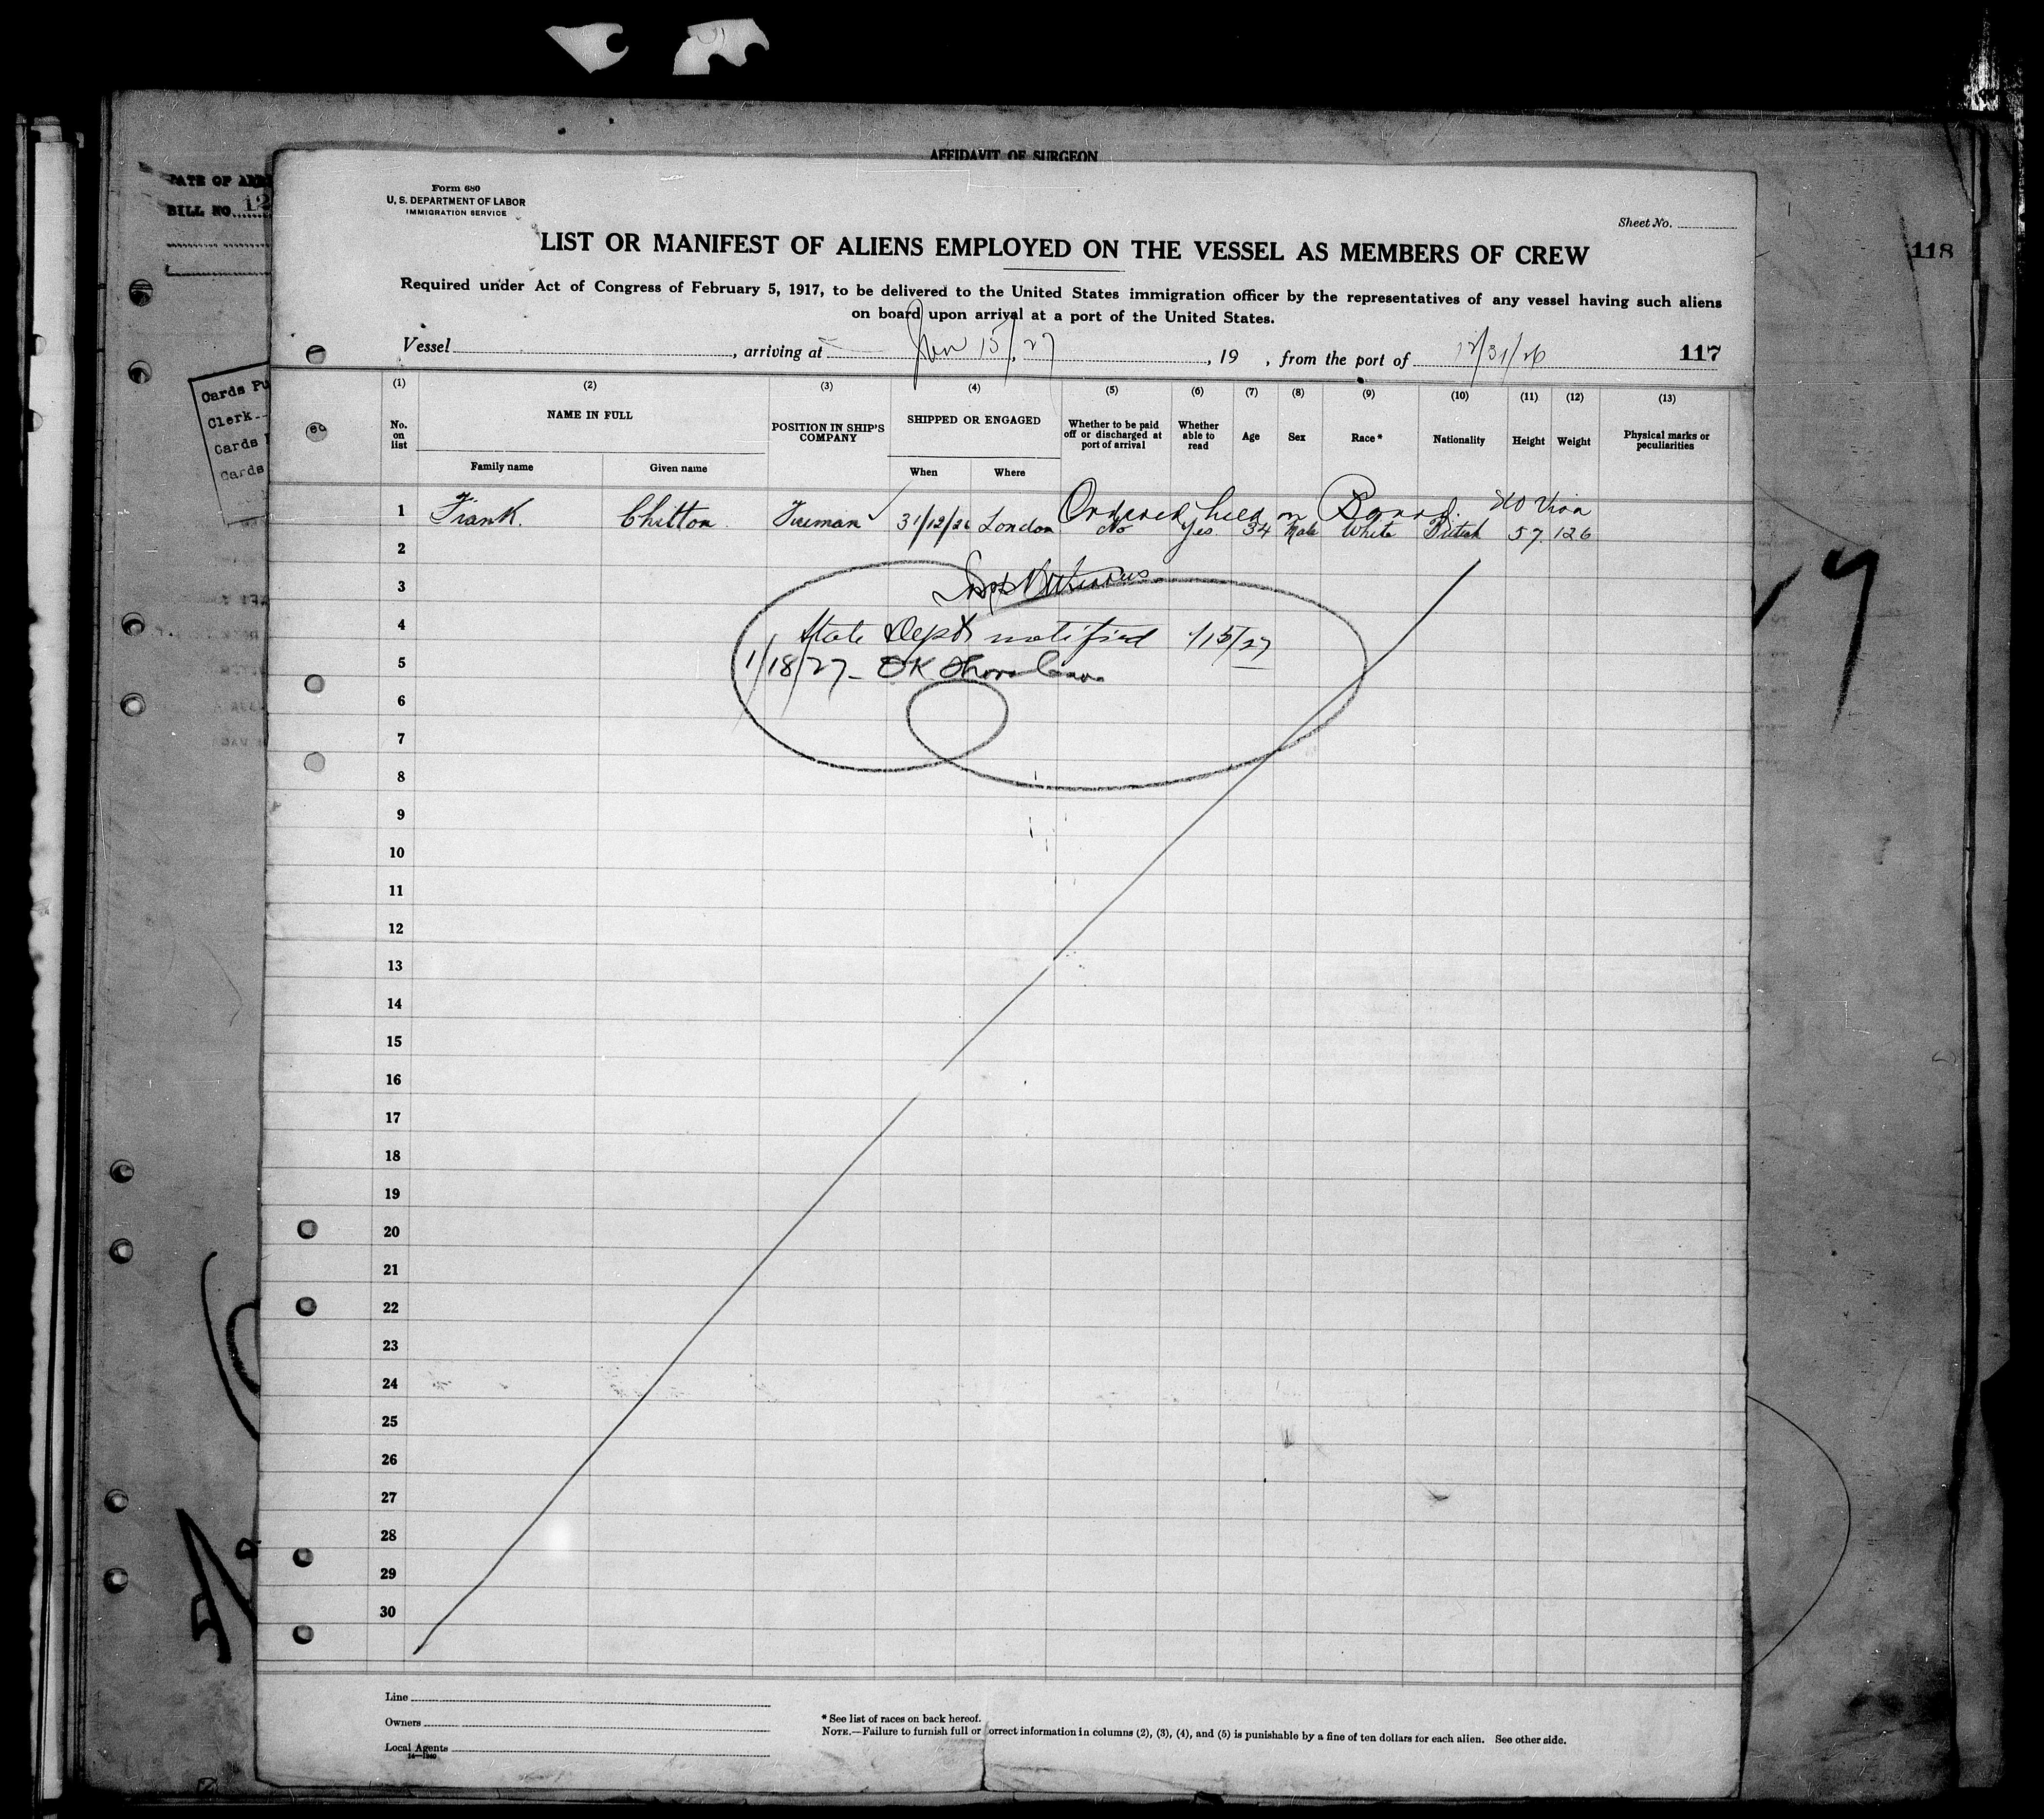 AFFIDAVIT OF SURGEON
DATE OF
BILL NO. 12
118
Cards
Clerk
Cards
Cards
Form 680
U. S. DEPARTMENT OF LABOR
IMMIGRATION SERVICE
Sheet No.
LIST OR MANIFEST OF ALIENS EMPLOYED ON THE VESSEL AS MEMBERS OF CREW
Required under Act of Congress of February 5, 1917, to be delivered to the United States immigration officer by the representatives of any vessel having such aliens
on board upon arrival at a port of the United States.
Vessel , arriving at Jan 15/27 , 19 , from the port of 12/31/26 117
(1) (2) (3) (4) (5) (6) (7) (8) (9) (10) (11) (12) (13)
No. on list NAME IN FULL POSITION IN SHIP'S COMPANY SHIPPED OR ENGAGED Whether to be paid off or discharged at port of arrival Whether able to read Age Sex Race* Nationality Height Weight Physical marks or peculiarities
Family name Given name When Where
Ordered held on Board. no Visa
1 Frank. Chitton. Fireman 31/12/26 London No Yes. 34 Male White British 57. 126
2
3
4 State Dept notified 1/15/27
5 1/18/27 - OK Shore leave
6
7
8
9
10
11
12
13
14
15
16
17
18
19
20
21
22
23
24
25
26
27
28
29
30
Line
Owners
Local Agents
14—1240
* See list of races on back hereof.
NOTE.—Failure to furnish full or correct information in columns (2), (3), (4), and (5) is punishable by a fine of ten dollars for each alien. See other side.